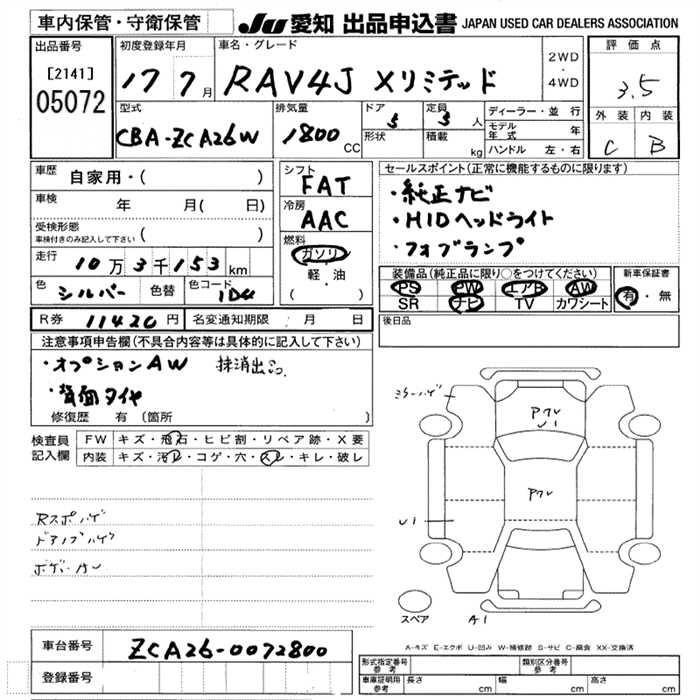 車内保管・守衛保管 JU 愛知 出品申込書 JAPAN USED CAR DEALERS ASSOCIATION
出品番号 初度登録年月 車名・グレード 評価点
[2141] 17 7月 RAV4J Xリミテッド 2WD・4WD 3.5
05072 型式 排気量 ドア 定員 ディーラー・並行 外装 内装
CBA-ZCA26W 1800CC 5 5人 モデル年式 年 C B
形状 積載 kg ハンドル 左・右
車歴 自家用・( ) シフト FAT セールスポイント(正常に機能するものに限ります)
車検 年 月( 日) 冷房 AAC ・純正ナビ
受検形態 ・HIDヘッドライト
車検付きのみ記入して下さい ( ) 燃料 ・フォグランプ
走行 10万3千153km ガソリン
軽・油 装備品(純正品に限り○をつけてください) 新車保証書
色 シルバー 色替 色コード 1D4 ( ) PS PW エアB AW 有・無
SR ナビ TV カワシート
R券 11420円 名変通知期限 月 日 後日品
注意事項申告欄(不具合内容等は具体的に記入して下さい)
・オプションAW 抹消出品
・背面タイヤ
修復歴 有 (箇所 )
ミラーハゲ
Pクレ
U1
検査員記入欄 FW キズ・飛石・ヒビ割・リペア跡・X要
内装 キズ・汚レ・コゲ・穴・スレ・キレ・破レ
Pクレ
Rスポハゲ
U1
ドアノブハゲ
スペア A1
A-キズ E-エクボ U-凹み W-補修跡 S-サビ C-腐食 XX-交換済
車台番号 ZCA26-0072800
登録番号
形式指定番号 参考 類別区分番号 参考
車庫証明用 参考 長さ cm 幅 cm 高さ cm